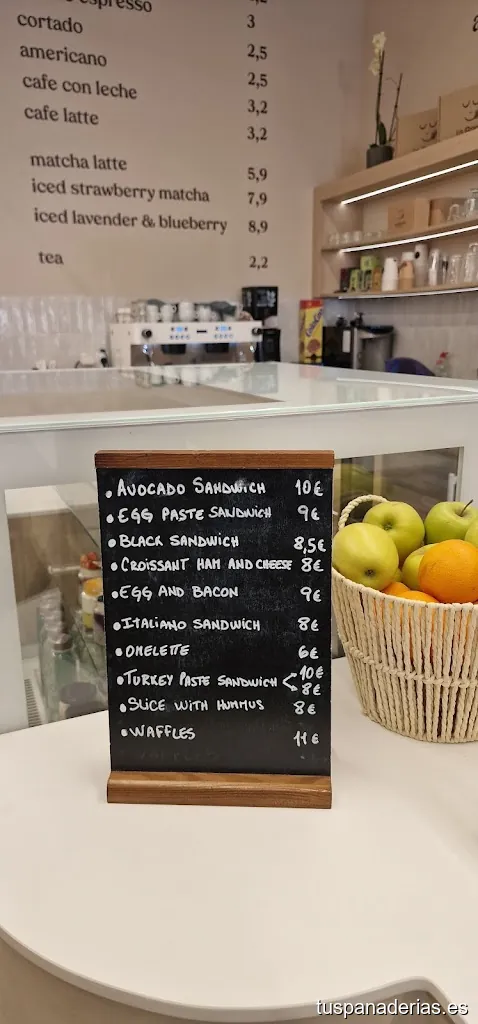 espresso
cortado 3
americano 2,5
cafe con leche 2,5
cafe latte 3,2
3,2
matcha latte 5,9
iced strawberry matcha 7,9
iced lavender & blueberry 8,9
tea 2,2
• AVOCADO SANDWICH 10€
• EGG PASTE SANDWICH 9€
• BLACK SANDWICH 8,5€
• CROISSANT HAM AND CHEESE 8€
• EGG AND BACON 9€
• ITALIANO SANDWICH 8€
• OMELETTE 6€
• TURKEY PASTE SANDWICH < 10€
8€
• SLICE WITH HUMMUS 8€
• WAFFLES 11€
tuspanaderias.es